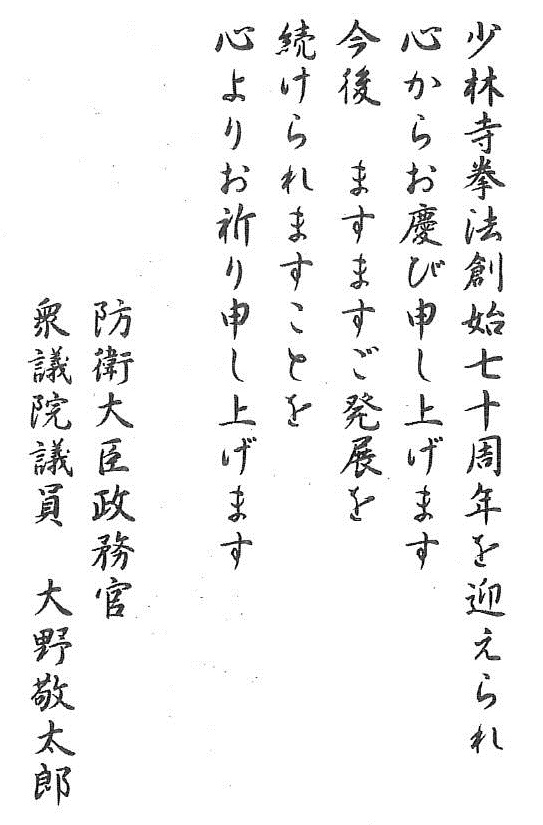 少林寺拳法創始七十周年を迎えられ
心からお慶び申し上げます
今後　ますますご発展を
続けられますことを
心よりお祈り申し上げます
防衛大臣政務官
衆議院議員　大野敬太郎